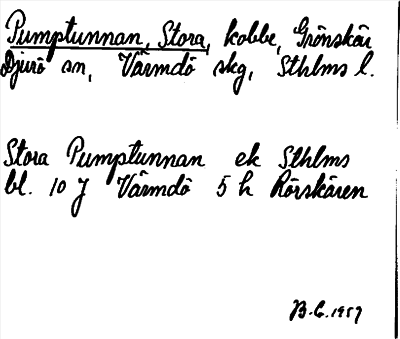 Pumptunnan, Stora, kobbe, Grönskär
Djurö sn, Värmdö skg, Sthlms l.
Stora Pumptunnan ek Sthlms
bl. 10 J Värmdö 5 h Rörskären
B.C. 1957